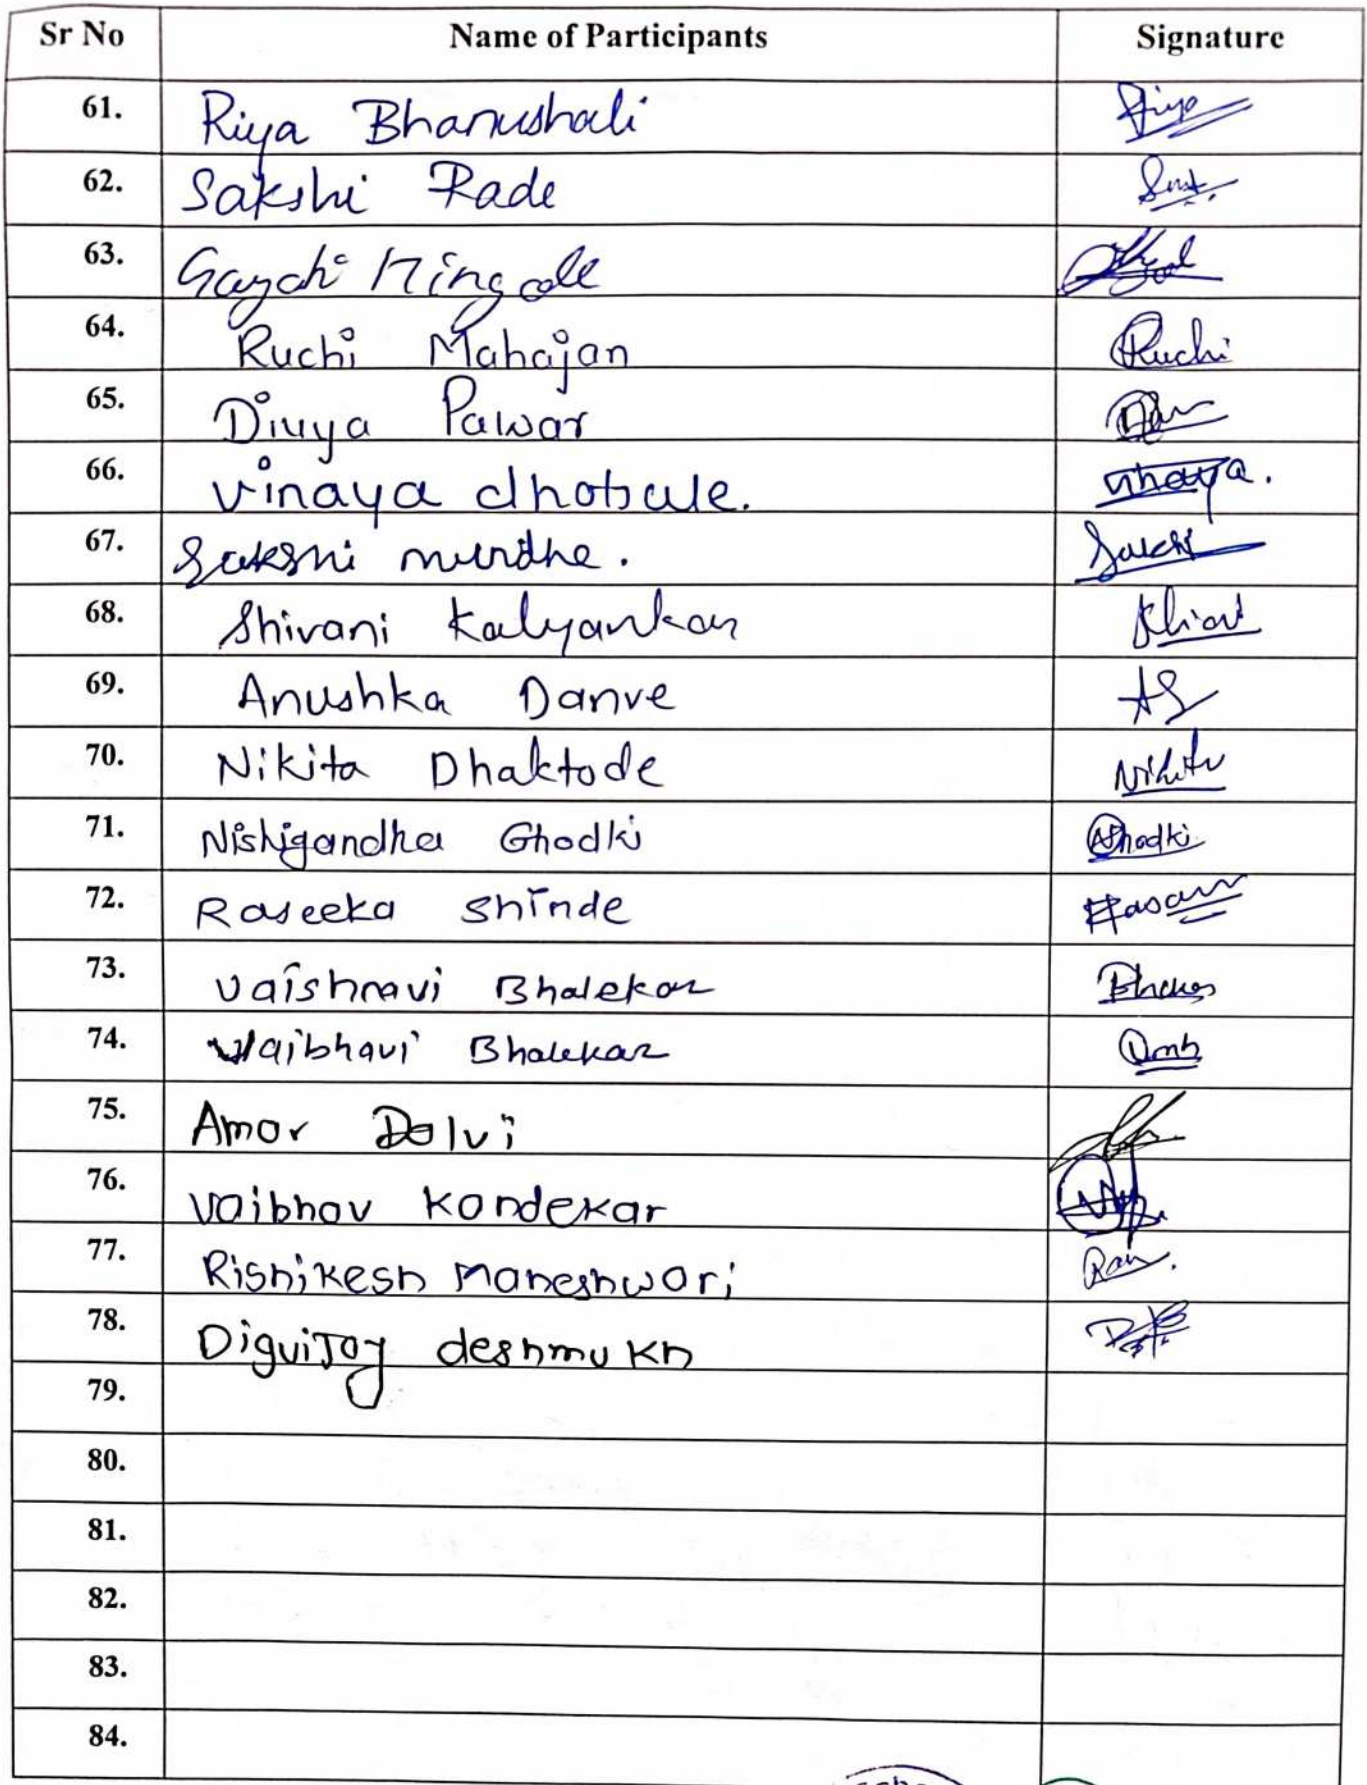 Sr No Name of Participants Signature
61. Riya Bhanushali Riya
62. Sakshi Rade
63. Hingole
64. Ruchi Mahajan Ruchi
65. Divya Pawar
66. Vinaya dhobale. Vinaya.
67. Sakshi mundhe. Sakshi
68. Shivani Kalyankar
69. Anushka Danve AS
70. Nikita Dhaktode Nikita
71. Nishigandha Ghodki Ghodki
72. Raseeka Shinde
73. Vaishnavi Bhalekar
74. Vaibhavi Bhalekar
75. Amar Dalvi
76. Vaibhav Kondekar
77. Rishikesh Maheshwari
78. Digvijay deshmukh
79.
80.
81.
82.
83.
84.